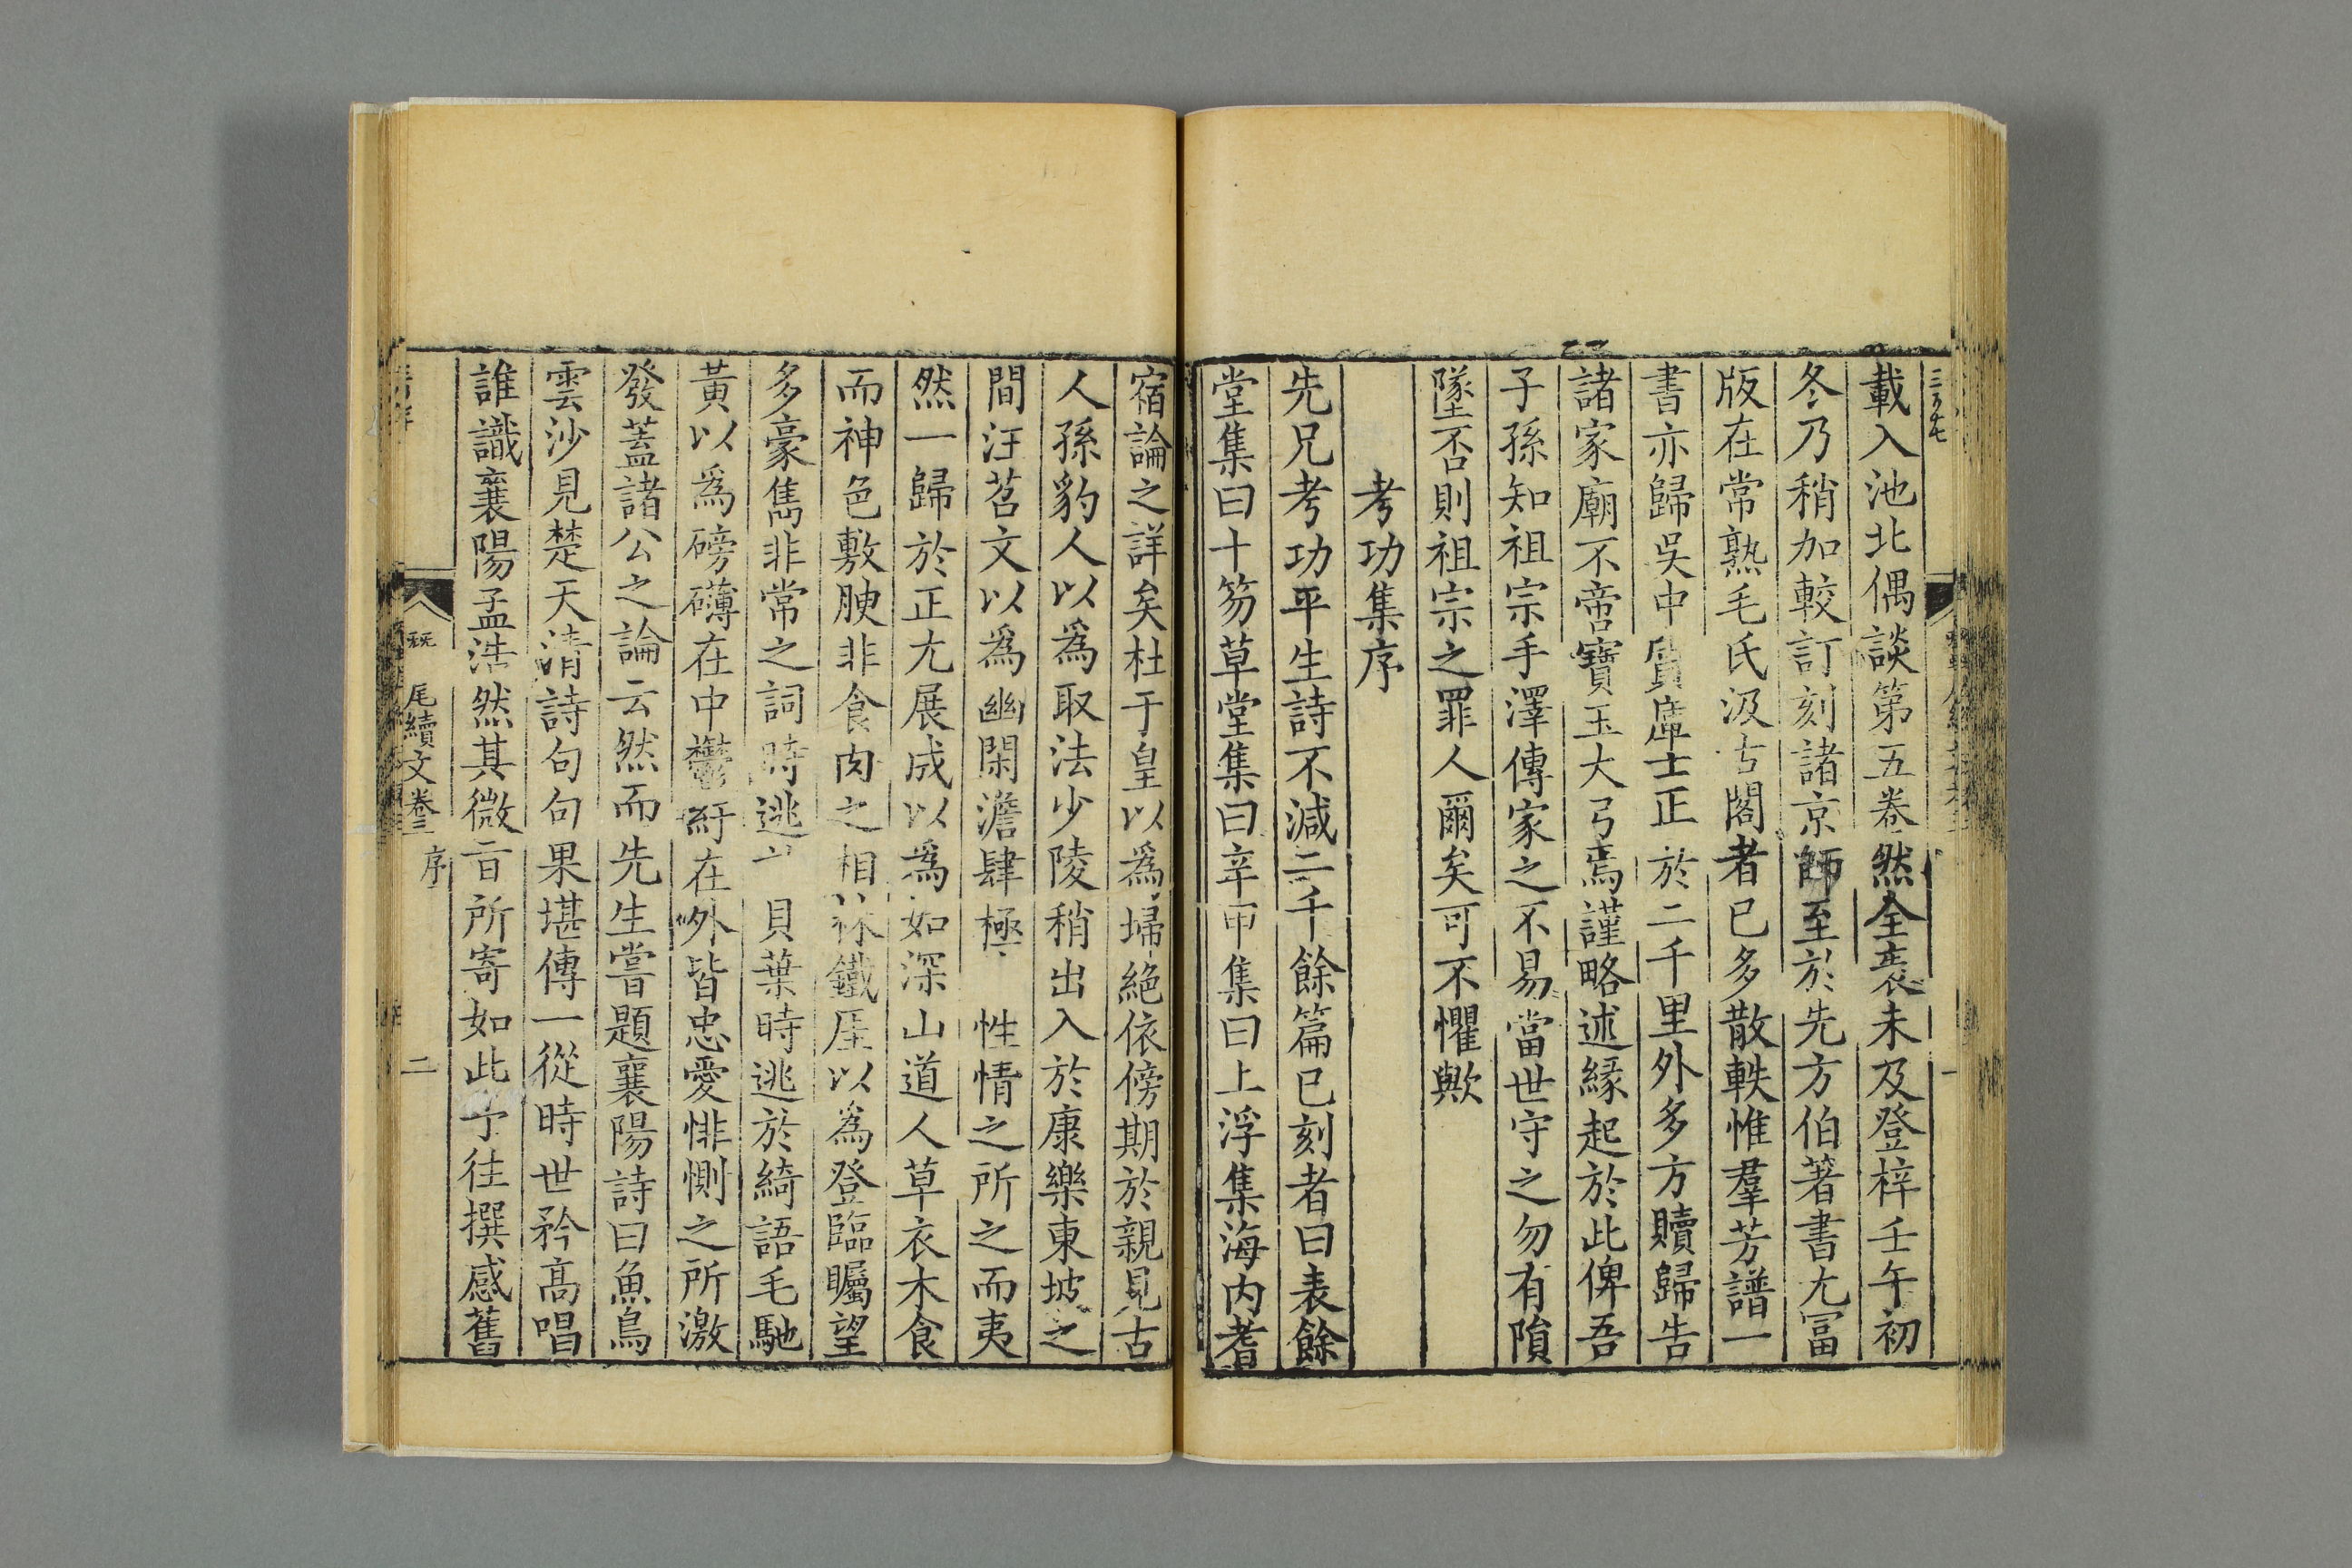 載入池北偶談第五卷然全袠未及登梓壬午初
冬乃稍加較訂刻諸京師至於先方伯著書尤冨
版在常熟毛氏汲古閣者已多散軼惟羣芳譜一
書亦歸吳中質庫士正於二千里外多方贖歸告
諸家廟不啻寶玉大弓焉謹略述緣起於此俾吾
子孫知祖宗手澤傳家之不易當世守之勿有隕
墜否則祖宗之罪人爾矣可不懼歟
考功集序
先兄考功平生詩不減二千餘篇已刻者曰表餘
堂集曰十笏草堂集曰辛甲集曰上浮集海內耆
宿論之詳矣杜于皇以為埽絕依傍期於親見古
人孫豹人以為取法少陵稍出入於康樂東坡之
間汪苕文以為幽閑澹肆極性情之所之而夷
然一歸於正尤展成以為如深山道人草衣木食
而神色敷腴非食肉之相林鐵厓以為登臨矚望
多豪雋非常之詞時逃 貝葉時逃於綺語毛馳
黃以為磅礴在中鬱紆在外皆忠愛悱惻之所激
發蓋諸公之論云然而先生嘗題襄陽詩曰魚鳥
雲沙見楚天清詩句句果堪傳一從時世矜高唱
誰識襄陽孟浩然其微旨所寄如此予往撰感舊
尾續文卷三 序 二